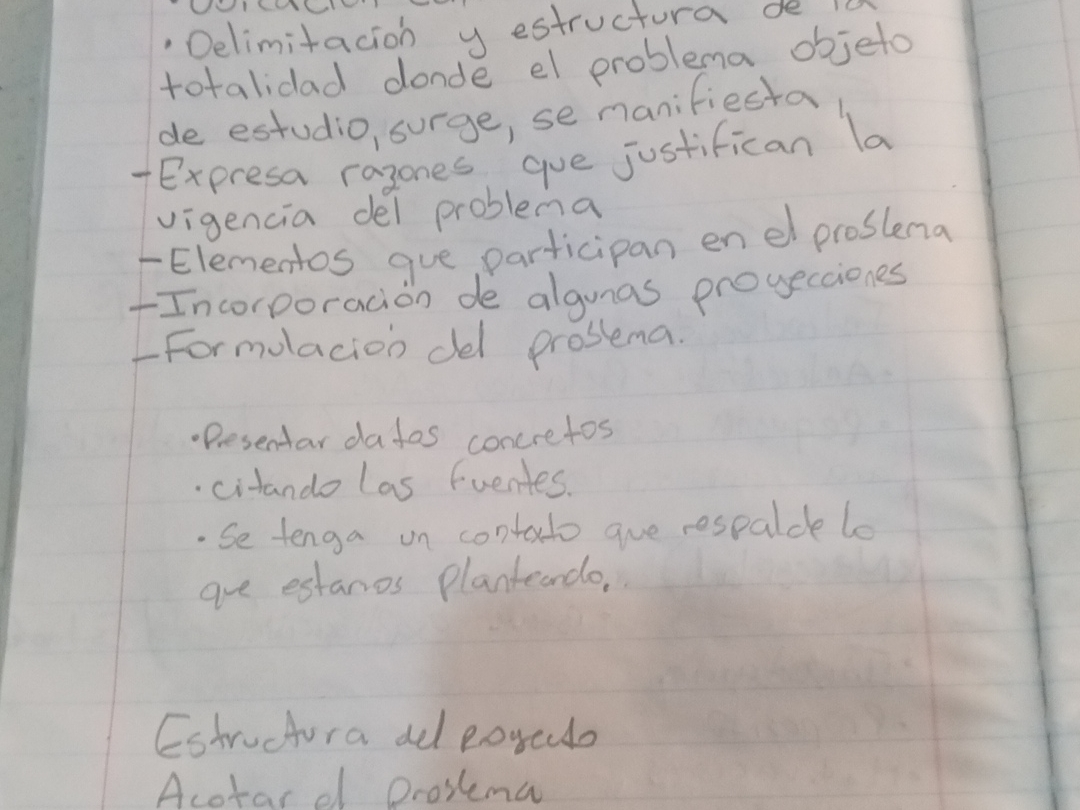 · Delimitación y estructura de la
totalidad donde el problema objeto
de estudio, surge, se manifiesta,
- Expresa razones que justifican la
vigencia del problema
- Elementos que participan en el problema
- Incorporación de algunas proyecciones
- Formulación del problema.
· Presentar datos concretos
· citando las fuentes.
· Se tenga un contexto que respalde lo
que estamos planteando.
Estructura del proyecto
Acotar el problema